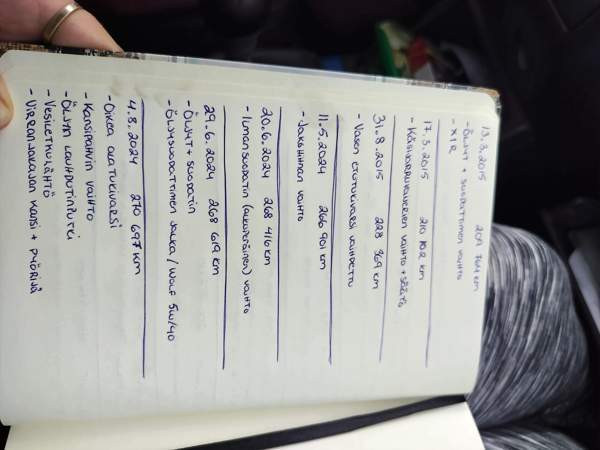 13.3.2015 209 764 km
- ÖLJYT + SUODATTIMEN VAIHTO
- XTR
17.3.2015 210 102 km
- KÄSIJARRUVAIJERIEN VAIHTO + SÄÄTÖ
31.8.2015 228 869 km
- VASEN ETUTUKIVARSI VAIHDETTU
11.5.2024 266 901 km
- JAKOHIHNAN VAIHTO
20.6.2024 268 416 km
- ILMANSUODATIN VAIHTO
29.6.2024 268 619 km
- ÖLJYT + SUODATIN
- ÖLJYNSUODATTIMEN JALKA / WOLF 5W/40
4.8.2024 270 697 km
- OIKEA ALATUKIVARSI
- KANSIPAHVIN VAIHTO
- ÖLJYN LAUHDUTINPUTKI
- VESILETKULÄHTÖ
- VIRRANJAKAJAN KANSI + PYÖRIJÄ